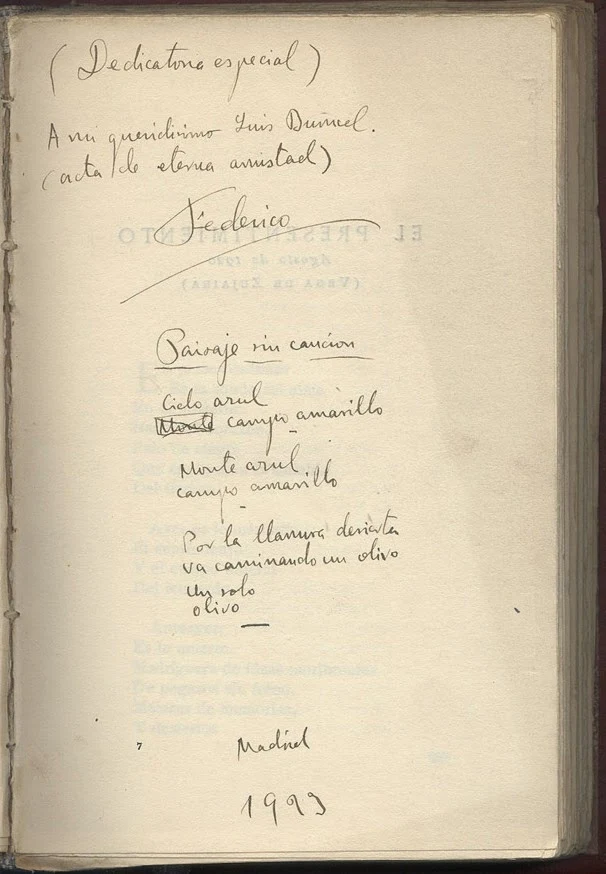 (Dedicatoria especial)
A mi queridísimo Luis Buñuel.
(acta de eterna amistad)
Federico
EL PRESENTIMIENTO
Agosto de 1920
(VEGA DE ZUJAIRA)
Paisaje sin canción
Cielo azul
Monte campo amarillo
Monte azul
campo amarillo
Por la llanura desierta
va caminando un olivo
un solo
olivo
7
Madrid
1923